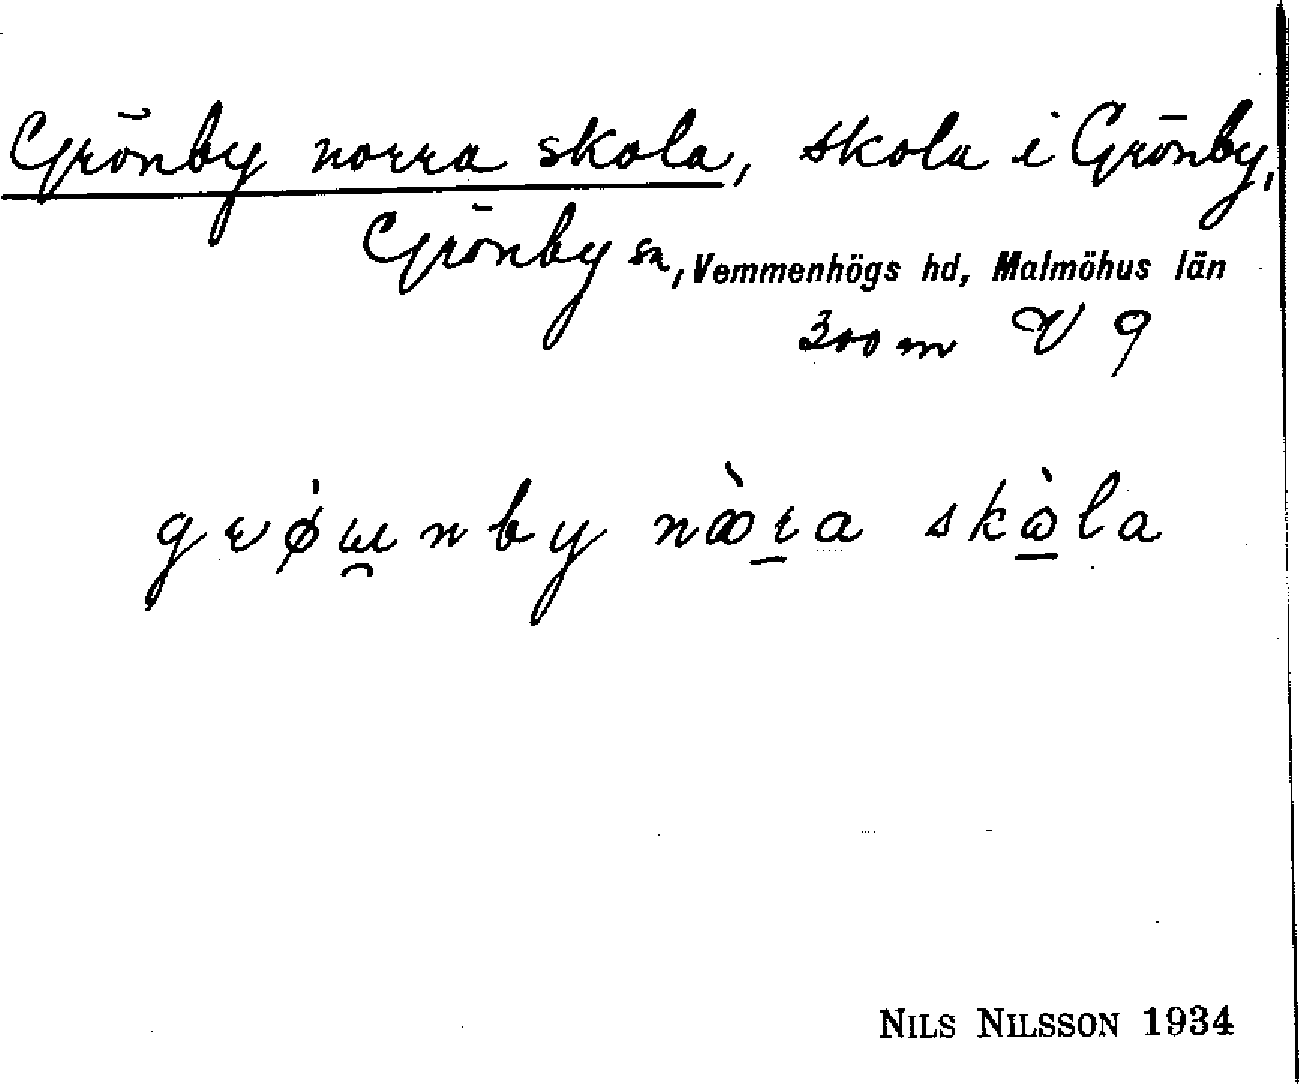 Grönby norra skola, skola i Grönby,
Grönby sn, Vemmenhögs hd, Malmöhus län
300 m V 9
skola
NILS NILSSON 1934